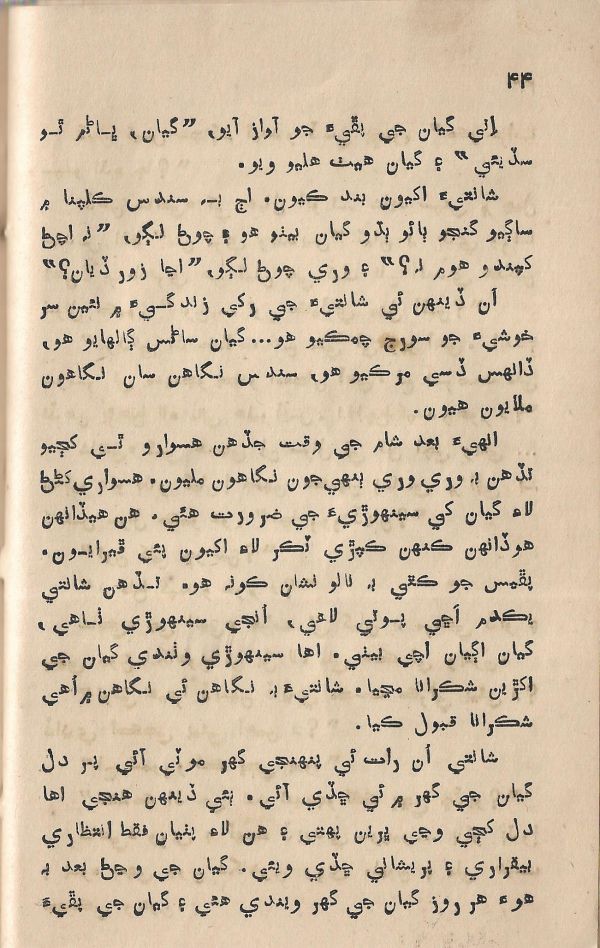 ۴۴
اتي گيان جي ٻڦيءَ جو آواز آيو، ”گيان، ڀاڻم ٿو
سڏيئي“ ۽ گيان هيٺ هليو ويو.
شانتيءَ اکيون بند ڪيون. اڄ بہ سندس ڪلپنا ۾
ساڳيو گنجو ٻائو ٻڏو گيان بيٺو هو ۽ چوڻ لڳو، ”نہ اچڻ
ڪيندو هوم نہ؟“ ۽ وري چوڻ لڳو، ”اڃا زور ڏيان؟“
اُن ڏينهن ئي شانتيءَ جي رکي زندگيءَ ۾ نئين سر
خوشيءَ جو سورج چمڪيو هو...گيان ساڻس ڳالهايو هو،
ڏانهس ڏسي مرڪيو هو، سندس نگاهن سان نگاهون
ملايون هيون.
انهيءَ بعد شام جي وقت جڏهن هسوارو ٿي ڪڃيو
تڏهن بہ وري وري ٻنهيجون نگاهون مليون. هسواري کڻڻ
لاءِ گيان کي سينهوڙيءَ جي ضرورت هئي. هن هيڏانهن
هوڏانهن ڪنهن ڪپڙي ٽڪر لاءِ اکيون پئي ڦيرايون.
ٻڦيس جو ڪٿي بہ نالو نشان ڪونہ هو. تڏهن شانتي
يڪدم اُڇي پوتي لاهي، اُنجي سينهوڙي ٺاهي،
گيان اڳيان اچي بيٺي. اها سينهوڙي وٺندي گيان جي
اکڙين شڪرانا مڃيا. شانتيءَ بہ نگاهن ئي نگاهن ۾ اُهي
شڪرانا قبول ڪيا.
شانتي اُن رات ئي پنهنجي گهر موٽي آئي پر دل
گيان جي گهر ۾ ئي ڇڏي آئي. ٻئي ڏينهن هنجي اها
دل کڄي وڃي پرين پهتي ۽ هن لاءِ پٺيان فقط انتظاري
بيقراري ۽ پريشاني ڇڏي ويئي. گيان جي وڃڻ بعد بہ
هوءَ هر روز گيان جي گهر ويندي هئي ۽ گيان جي ٻڦيءَ